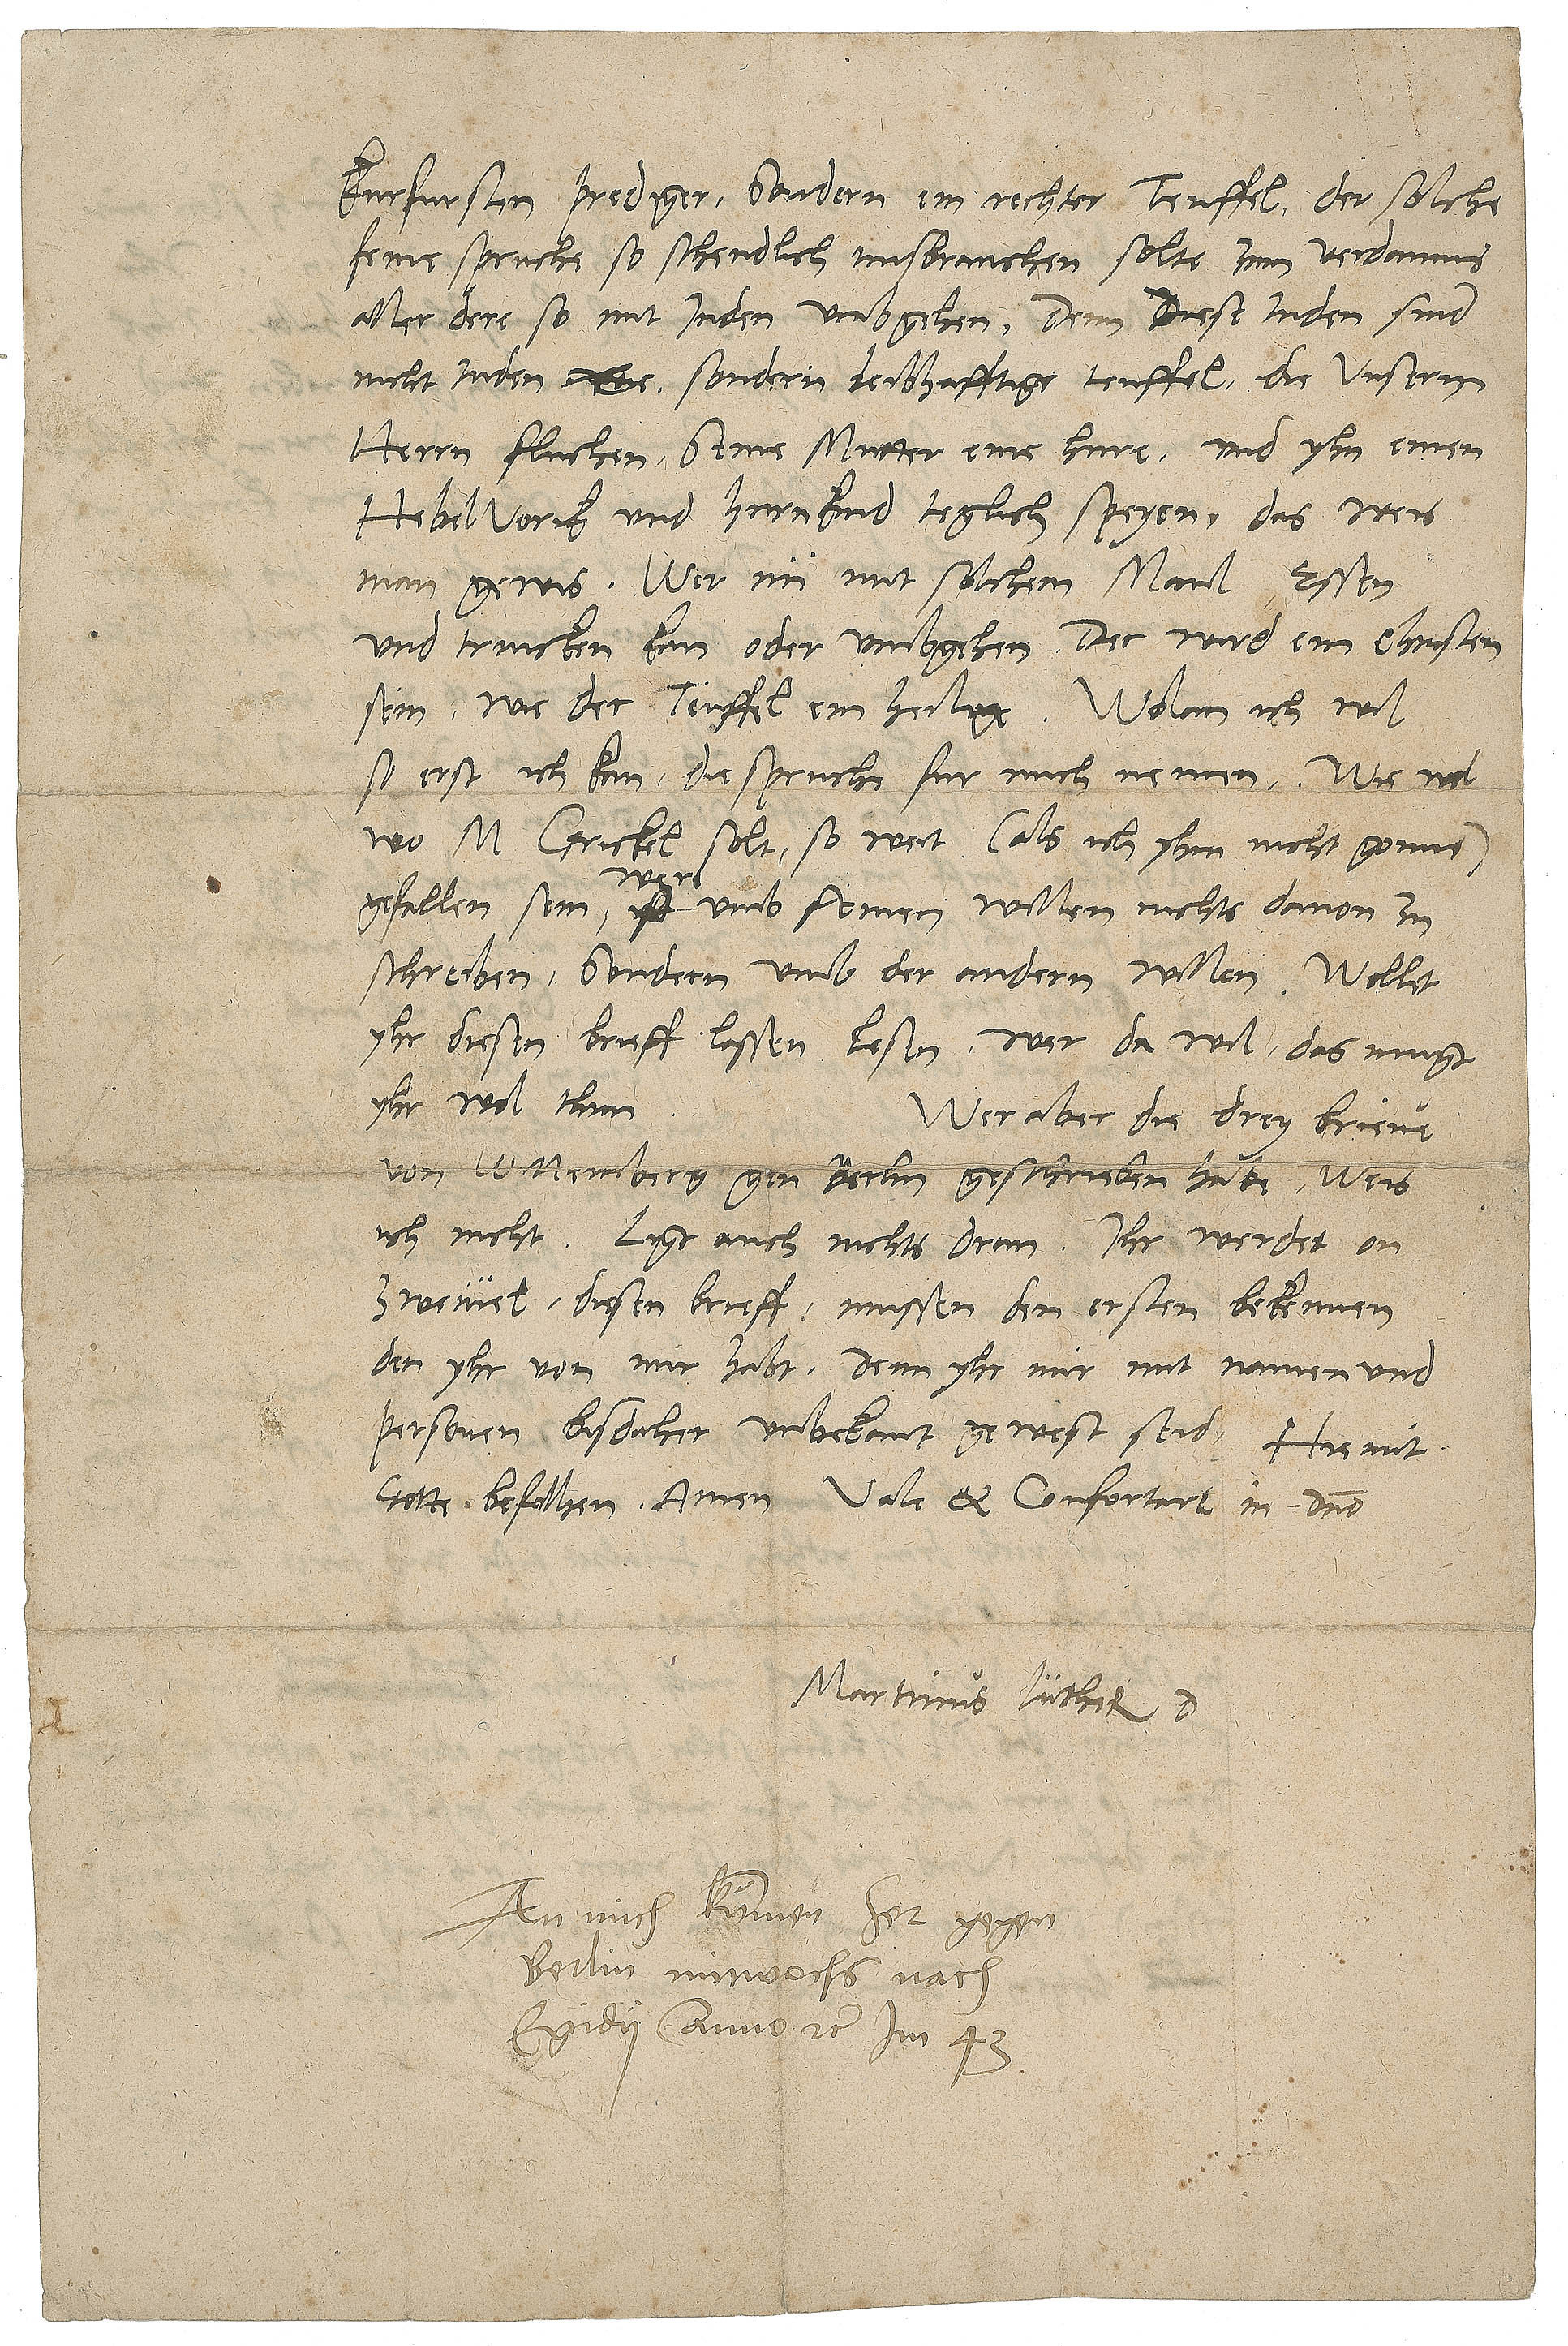 kurfursten prediger, Sondern ein rechter Teuffel, der solche
seine spruche so schendlich misbrauchen solte zum verdamnis
aller dere so mit Juden umbgehen, Denn Diese Juden sind
nicht Juden sondern leibhafftige teuffel, die Unserm
Herrn fluchen, Seine Mutter eine hure, und yhn einen
Hebel Vorik und hurnkind teglich speyen, das weis
man gewis. Wer nu mit solchem Maul Essen
und trincken kan oder umbgehen Der wird ein Christen
sein, wie der Teuffel ein heilige. Wolan ich wil
so erst ich kan, die spruche fur mich nemen, Wie wol
wo M Grickel solt, so weit (als ich yhm nicht gonne)
were
gefallen sein, ist umb seinen willen nichts davon zu
schreiben, Sondern umb der andern willen. Wollet
yhr diesen brieff lassen Lesen, wer da wil, das mugt
yhr wol thun Wer aber die drey brieve
von Wittemberg gen Berlin geschrieben habe, Weis
ich nicht. Ligt auch nichts dran. Ihr werdet on
zweivel, diesen brieff, mussen den ersten bekennen
den yhr von mir habt, Denn yhr mir mit namen und
personen bisdaher unbekant gewest seid, Hiemit
Gotte befolhen. Amen Vale & Confortare in dno
Martinus Luther D
An mich kummen her gegen
Berlin mitwochs nach
Egidij Anno rc Im 43